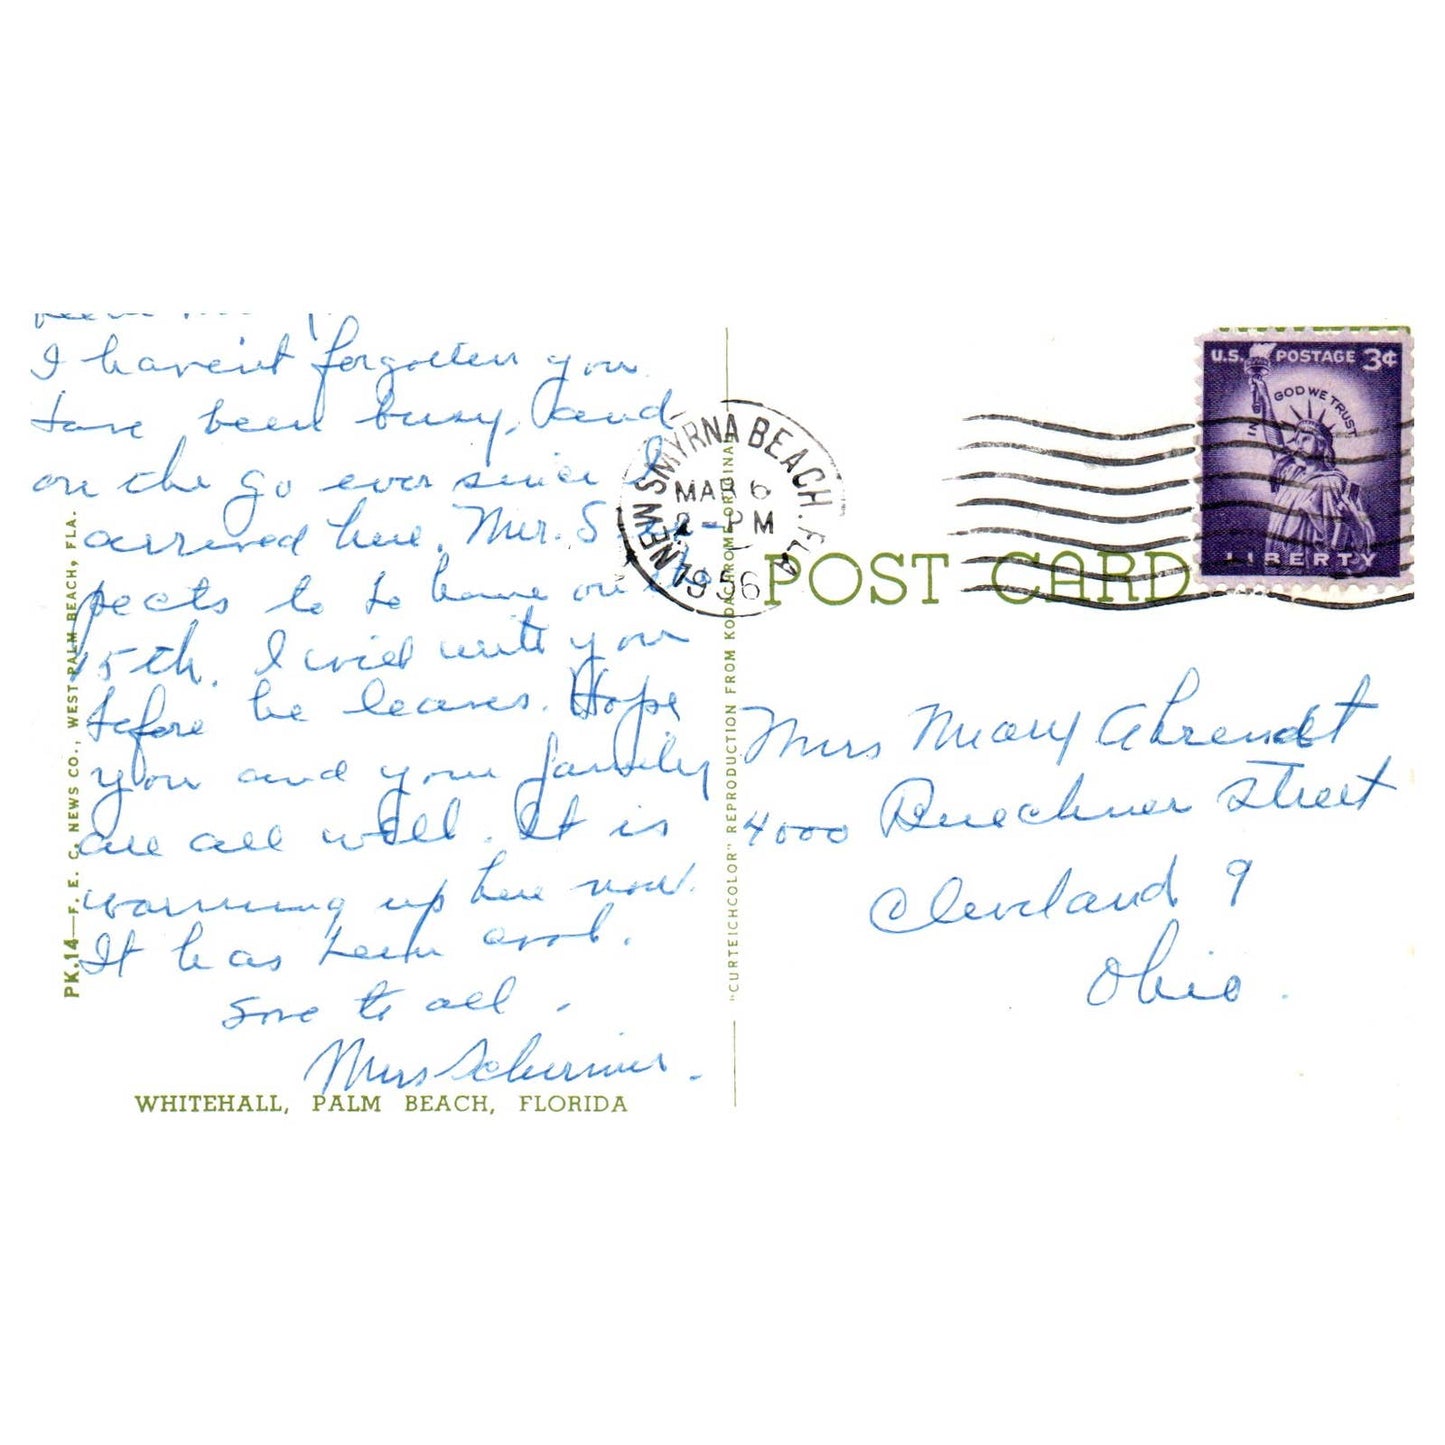 I haven't forgotten you
have been busy, and
on the go ever since I
arrived here. Mr. S ex-
pects to be home on the
15th. I will write you
before he leaves. Hope
you and your family
are all well. It is
warming up here now.
It has been cool.
Love to all.
Mrs Schirmer.
WHITEHALL, PALM BEACH, FLORIDA
PK.14—F. E. C. NEWS CO., WEST PALM BEACH, FLA.
"CURTEICHCOLOR" REPRODUCTION FROM KODACHROME ORIGINAL
NEW SMYRNA BEACH. FLA
MAR 6
2-PM
1956
U.S. POSTAGE 3¢
IN GOD WE TRUST
LIBERTY
POST CARD
Mrs Mary Ahrendt
4000 Buechner Street
Cleveland 9
Ohio.